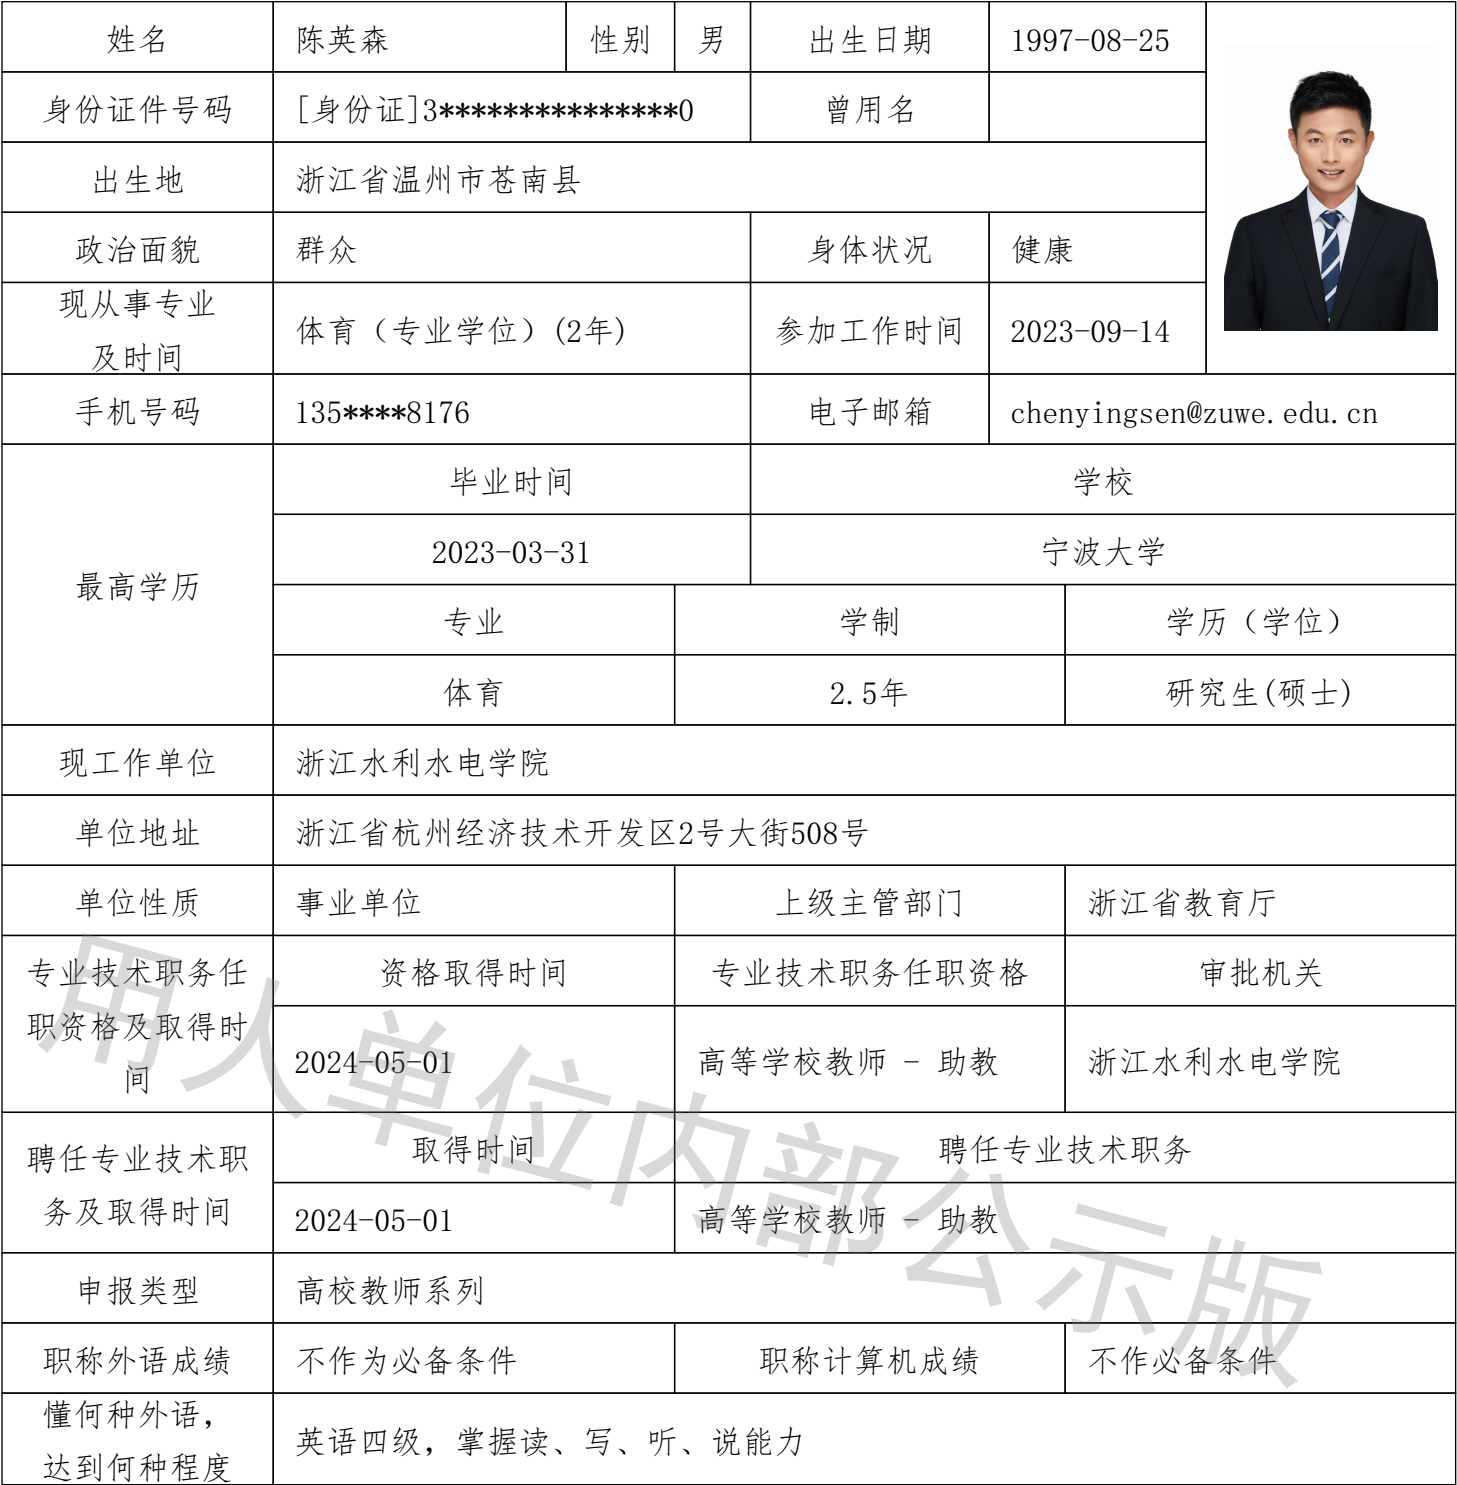 姓名 陈英森 性别 男 出生日期 1997-08-25
身份证件号码 [身份证]3***************0 曾用名
出生地 浙江省温州市苍南县
政治面貌 群众 身体状况 健康
现从事专业
及时间 体育（专业学位）(2年) 参加工作时间 2023-09-14
手机号码 135****8176 电子邮箱 chenyingsen@zuwe.edu.cn
最高学历
毕业时间 学校
2023-03-31 宁波大学
专业 学制 学历（学位）
体育 2.5年 研究生(硕士)
现工作单位 浙江水利水电学院
单位地址 浙江省杭州经济技术开发区2号大街508号
单位性质 事业单位 上级主管部门 浙江省教育厅
专业技术职务任
职资格及取得时
间
资格取得时间 专业技术职务任职资格 审批机关
2024-05-01 高等学校教师 - 助教 浙江水利水电学院
聘任专业技术职
务及取得时间
取得时间 聘任专业技术职务
2024-05-01 高等学校教师 - 助教
申报类型 高校教师系列
职称外语成绩 不作为必备条件 职称计算机成绩 不作必备条件
懂何种外语，
达到何种程度 英语四级，掌握读、写、听、说能力
用人单位内部公示版